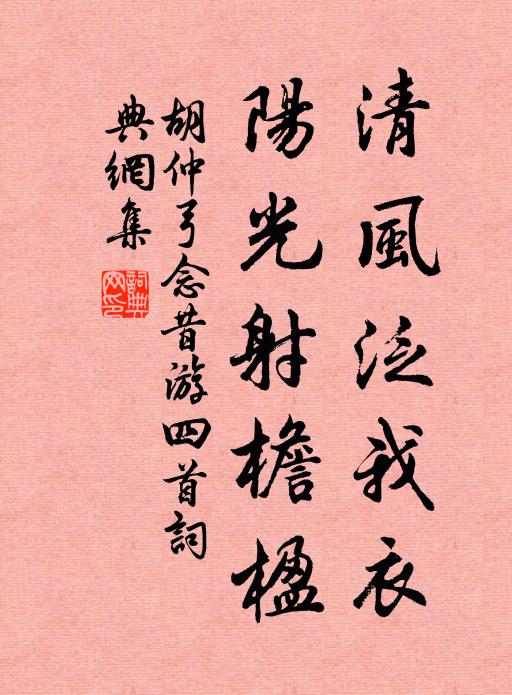 清風泛我衣
陽光射檐楹
胡仲弓念昔游四首詞
典網集
詞典網印